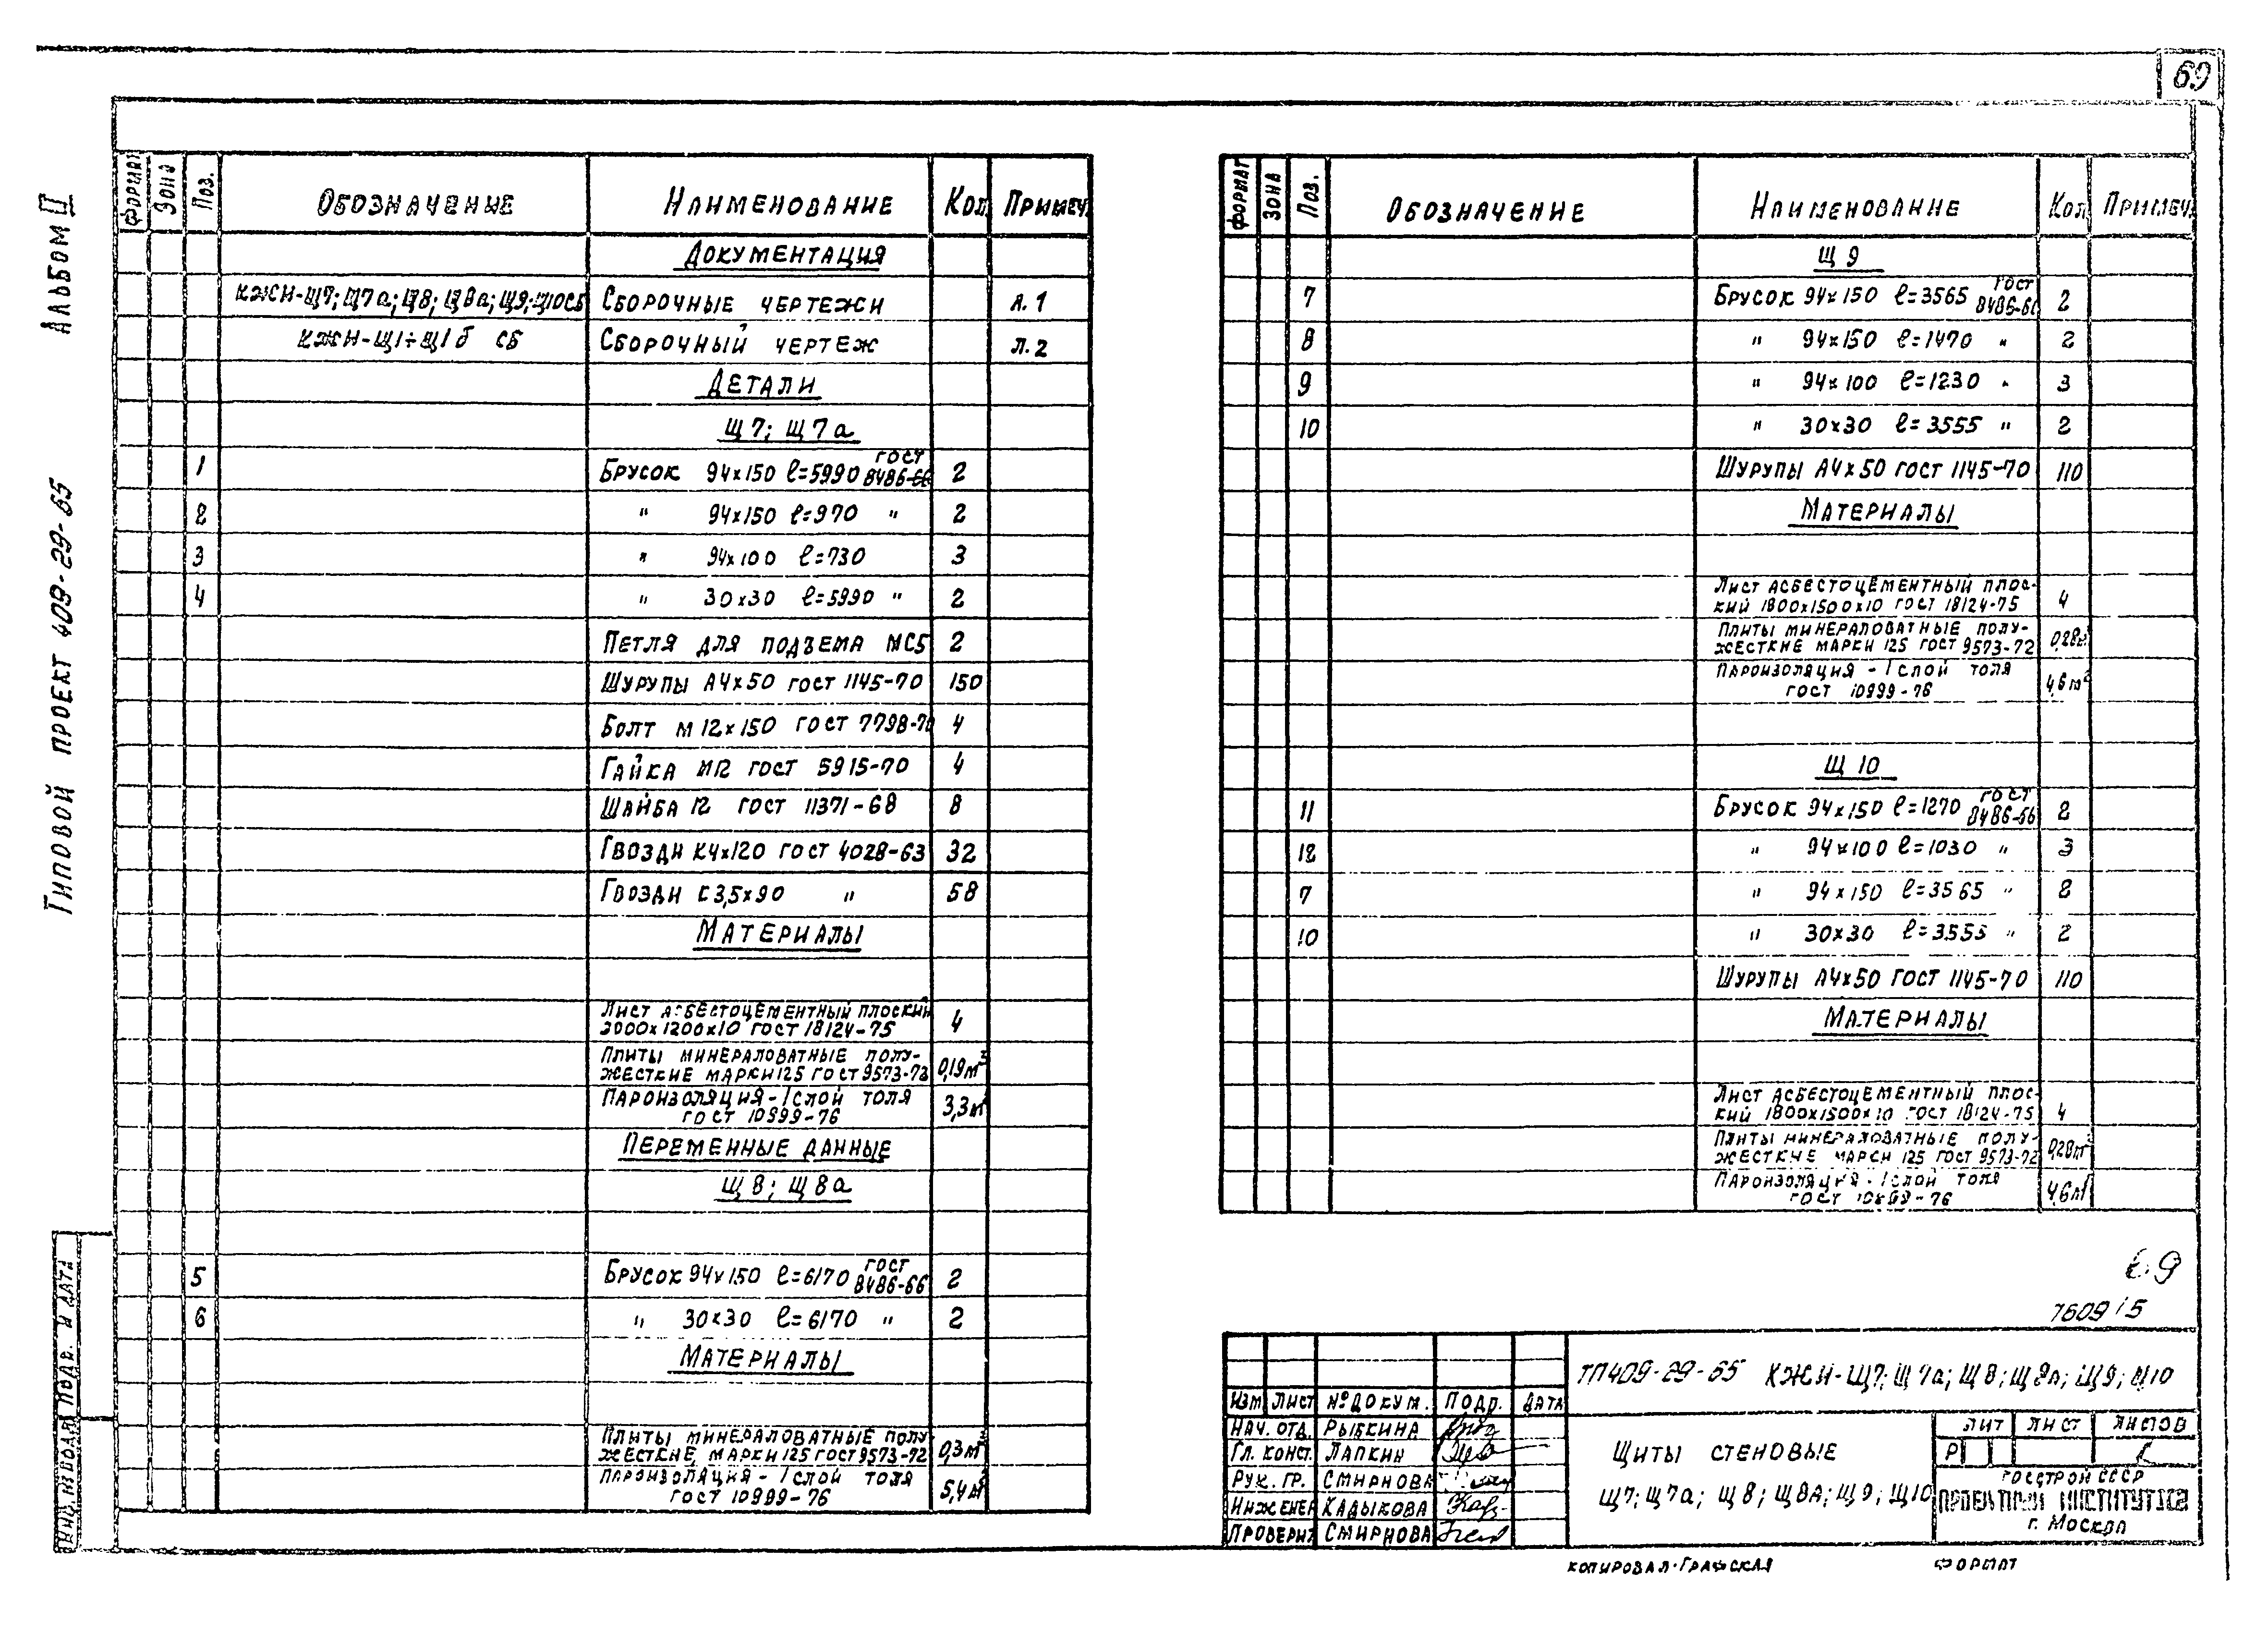 69
Альбом II
Типовой проект 409-29-65
Инв. № подл. Подп. и дата
Формат Зона Поз. Обозначение Наименование Кол. Примеч.
Документация
КЖН-Щ7; Щ7а; Щ8; Щ8а; Щ9; Щ10СБ Сборочные чертежи л.1
КЖН-Щ1÷Щ1б СБ Сборочный чертеж л.2
Детали
Щ7; Щ7а
1 Брусок 94х150 ℓ=5990 ГОСТ 8486-66 2
2 " 94х150 ℓ=970 " 2
3 " 94х100 ℓ=730 3
4 " 30х30 ℓ=5990 " 2
Петля для подъема МС5 2
Шурупы А4х50 ГОСТ 1145-70 150
Болт М12х150 ГОСТ 7798-70 4
Гайка М12 ГОСТ 5915-70 4
Шайба 12 ГОСТ 11371-68 8
Гвозди К4х120 ГОСТ 4028-63 32
Гвозди С3,5х90 " 58
Материалы
Лист асбестоцементный плоский
2000х1200х10 ГОСТ 18124-75 4
Плиты минераловатные полу-
жесткие марки 125 ГОСТ 9573-72 0,19м³
Пароизоляция - 1 слой толя
ГОСТ 10999-76 3,3м²
Переменные данные
Щ8; Щ8а
5 Брусок 94х150 ℓ=6170 ГОСТ 8486-66 2
6 " 30х30 ℓ=6170 " 2
Материалы
Плиты минераловатные полу-
жесткие марки 125 ГОСТ 9573-72 0,3м³
Пароизоляция - 1 слой толя
ГОСТ 10999-76 5,4м²
Формат Зона Поз. Обозначение Наименование Кол. Примеч.
Щ9
7 Брусок 94х150 ℓ=3565 ГОСТ 8486-66 2
8 " 94х150 ℓ=1470 " 2
9 " 94х100 ℓ=1230 " 3
10 " 30х30 ℓ=3555 " 2
Шурупы А4х50 ГОСТ 1145-70 110
Материалы
Лист асбестоцементный плос-
кий 1800х1500х10 ГОСТ 18124-75 4
Плиты минераловатные полу-
жесткие марки 125 ГОСТ 9573-72 0,28м³
Пароизоляция - 1 слой толя
ГОСТ 10999-76 4,6м²
Щ10
11 Брусок 94х150 ℓ=1270 ГОСТ 8486-66 2
12 " 94х100 ℓ=1030 " 3
7 " 94х150 ℓ=3565 " 2
10 " 30х30 ℓ=3555 " 2
Шурупы А4х50 ГОСТ 1145-70 110
Материалы
Лист асбестоцементный плос-
кий 1800х1500х10 ГОСТ 18124-75 4
Плиты минераловатные полу-
жесткие марки 125 ГОСТ 9573-72 0,28м³
Пароизоляция - 1 слой толя
ГОСТ 10999-76 4,6м²
69
7609/5
ТП409-29-65 КЖН-Щ7; Щ7а; Щ8; Щ8а; Щ9; Щ10
Изм Лист № докум. Подп. Дата
Нач. отд. Рыбкина
Гл. конст. Лапкин
Рук. гр. Смирнова
Инженер Кадыкова
Проверил Смирнова
Щиты стеновые
Щ7; Щ7а; Щ8; Щ8а; Щ9; Щ10
Лит Лист Листов
Р
Госстрой СССР
Проектный институт №2
г. Москва
Копировал-Графская Формат